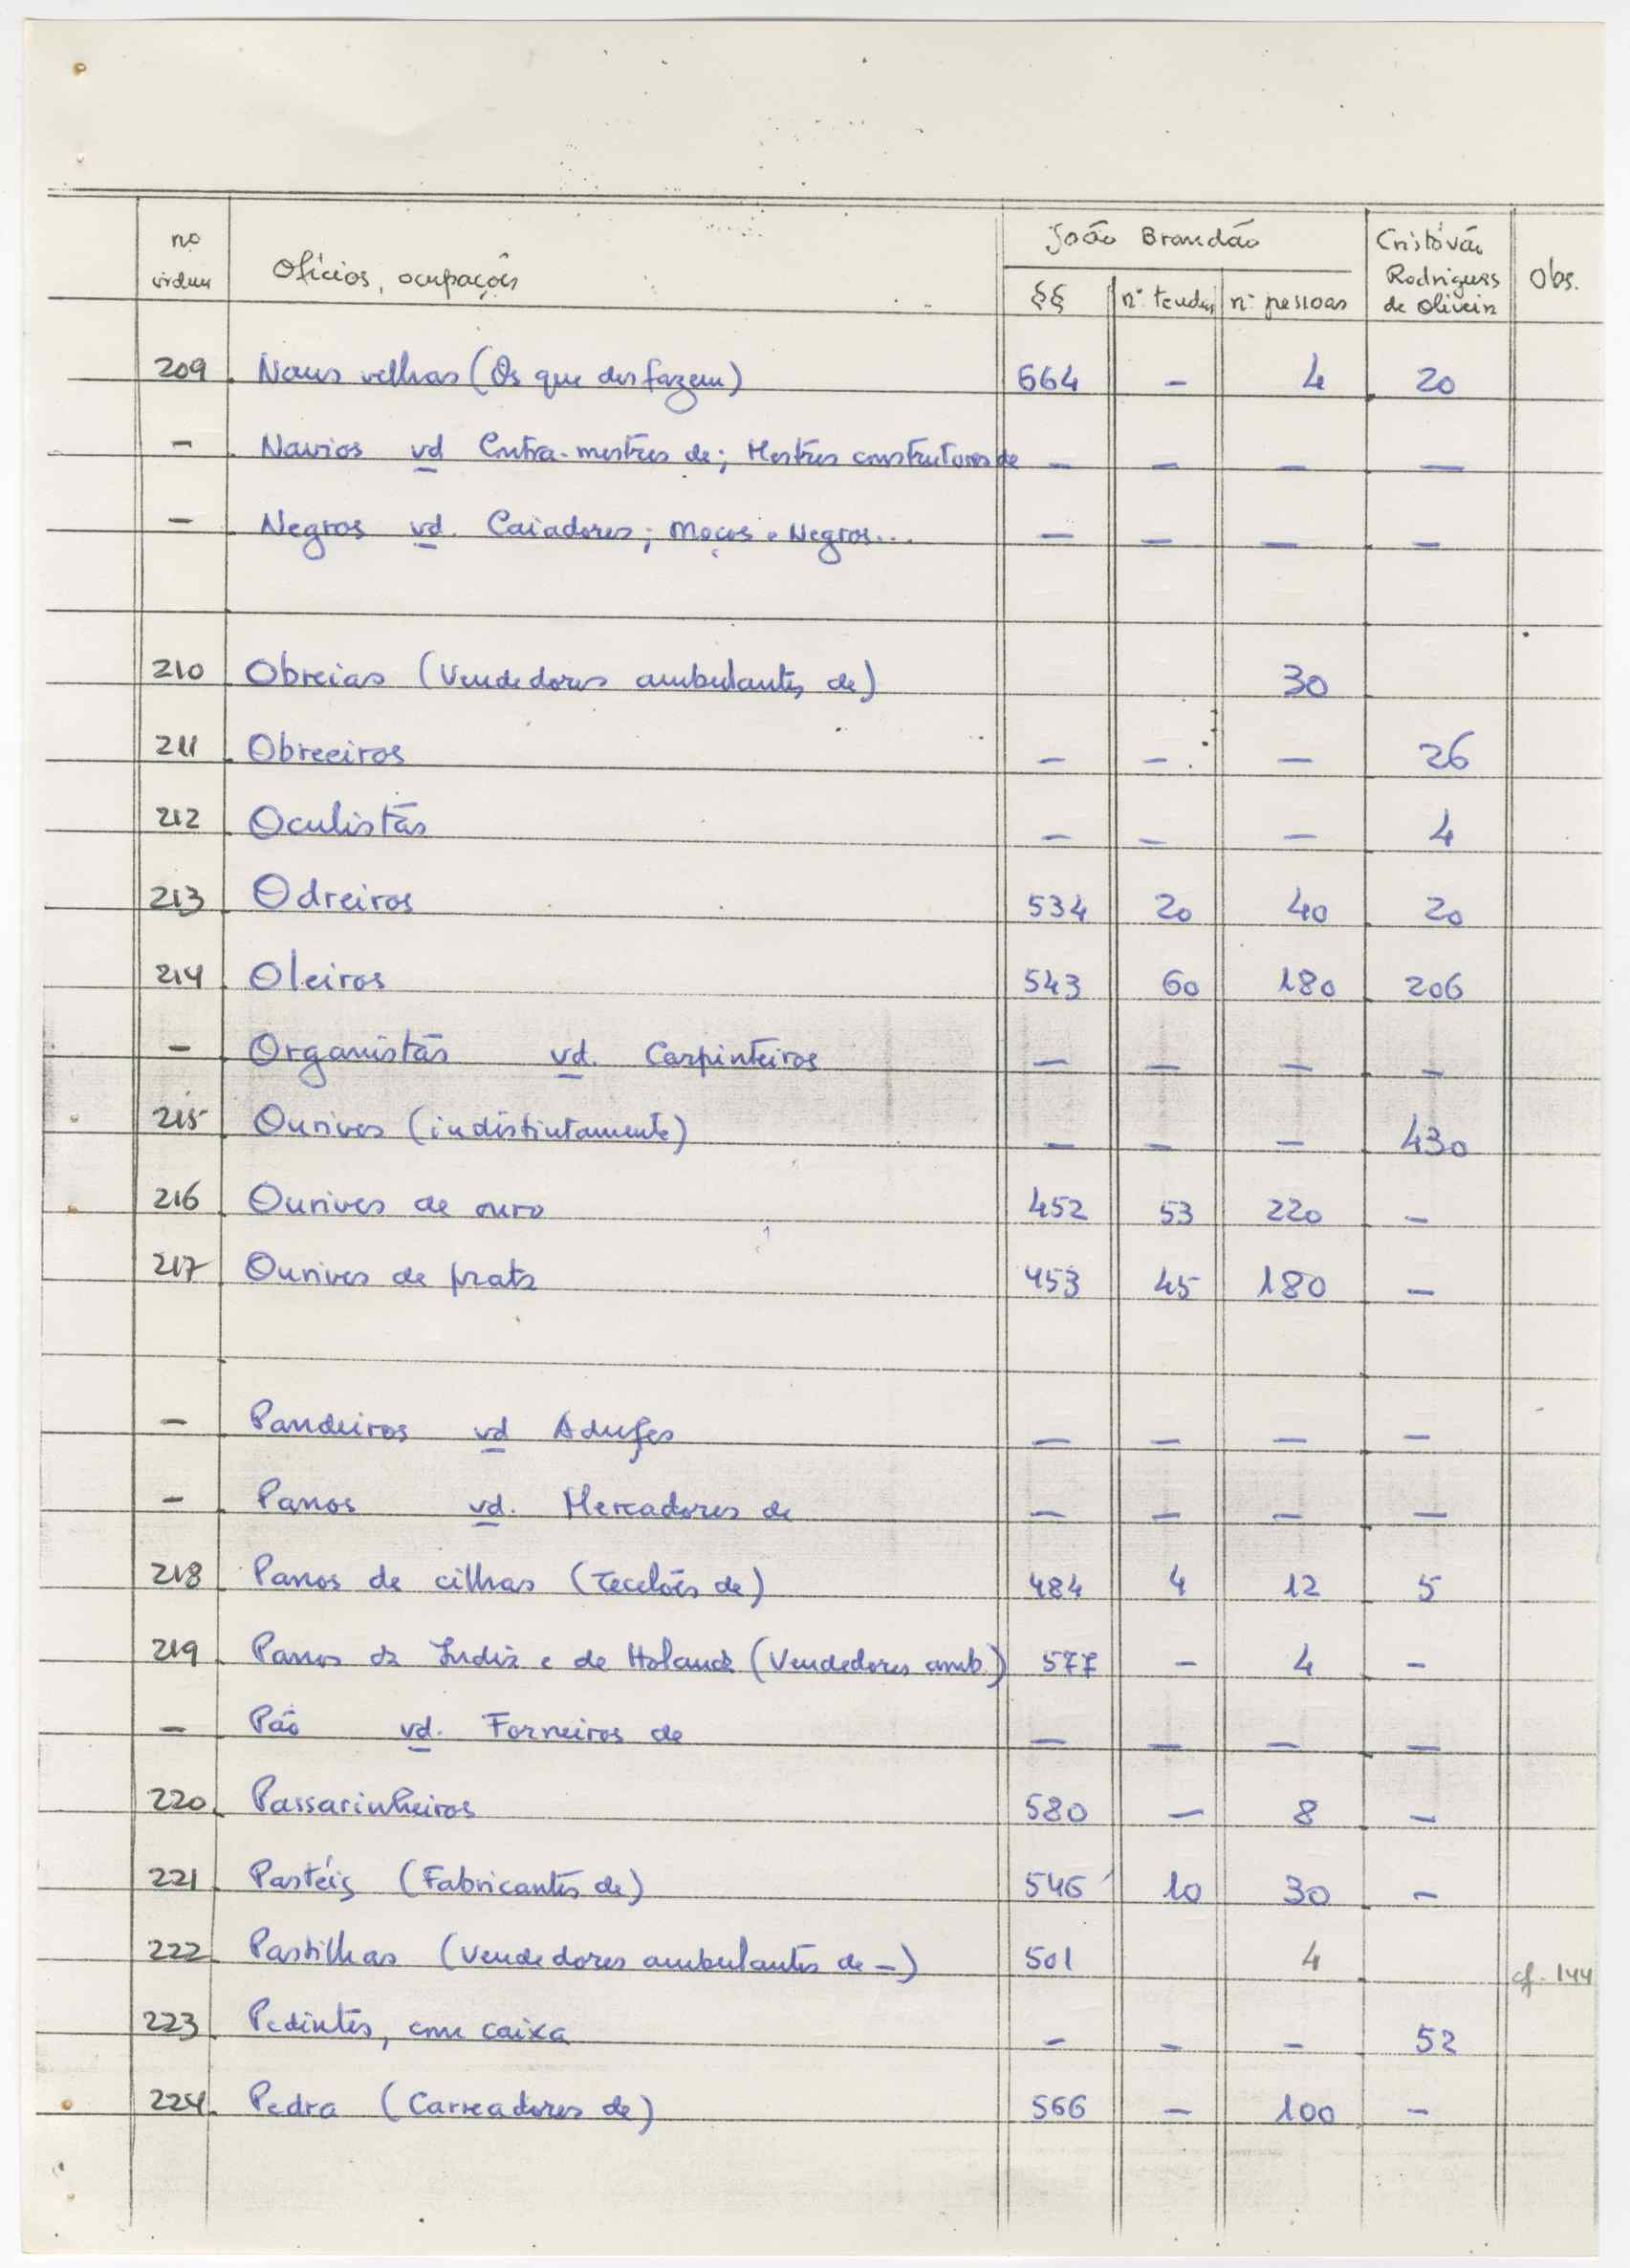 no ordem | Ofícios, ocupações | João Brandão | Cristóvão Rodrigues de Oliveira | Obs.
§§ | nº tendas | nº pessoas
209 Naus velhas (Os que desfazem) 664 – 4 20
– Navios vd Contra-mestres de; Mestres construtores de – – – –
– Negros vd. Caiadores; Moços e Negros... – – – –
210 Obreias (Vendedores ambulantes de) 30
211 Obreeiros – – – 26
212 Oculistas – – – 4
213 Odreiros 534 20 40 20
214 Oleiros 543 60 180 206
– Organistas vd. Carpinteiros – – – –
215 Ourives (indistintamente) – – – 430
216 Ourives de ouro 452 53 220 –
217 Ourives de prata 453 45 180 –
– Pandeiros vd Adufes – – – –
– Panos vd. Mercadores de – – – –
218 Panos de cilhas (Tecelões de) 484 4 12 5
219 Panos da Índia e de Holanda (Vendedores amb.) 577 – 4 –
– Pão vd. Forneiros de – – – –
220 Passarinheiros 580 – 8 –
221 Pastéis (Fabricantes de) 546 10 30 –
222 Pastilhas (Vendedores ambulantes de –) 501 4 cf. 144
223 Pedintes, com caixa – – – 52
224 Pedra (Carreadores de) 566 – 100 –